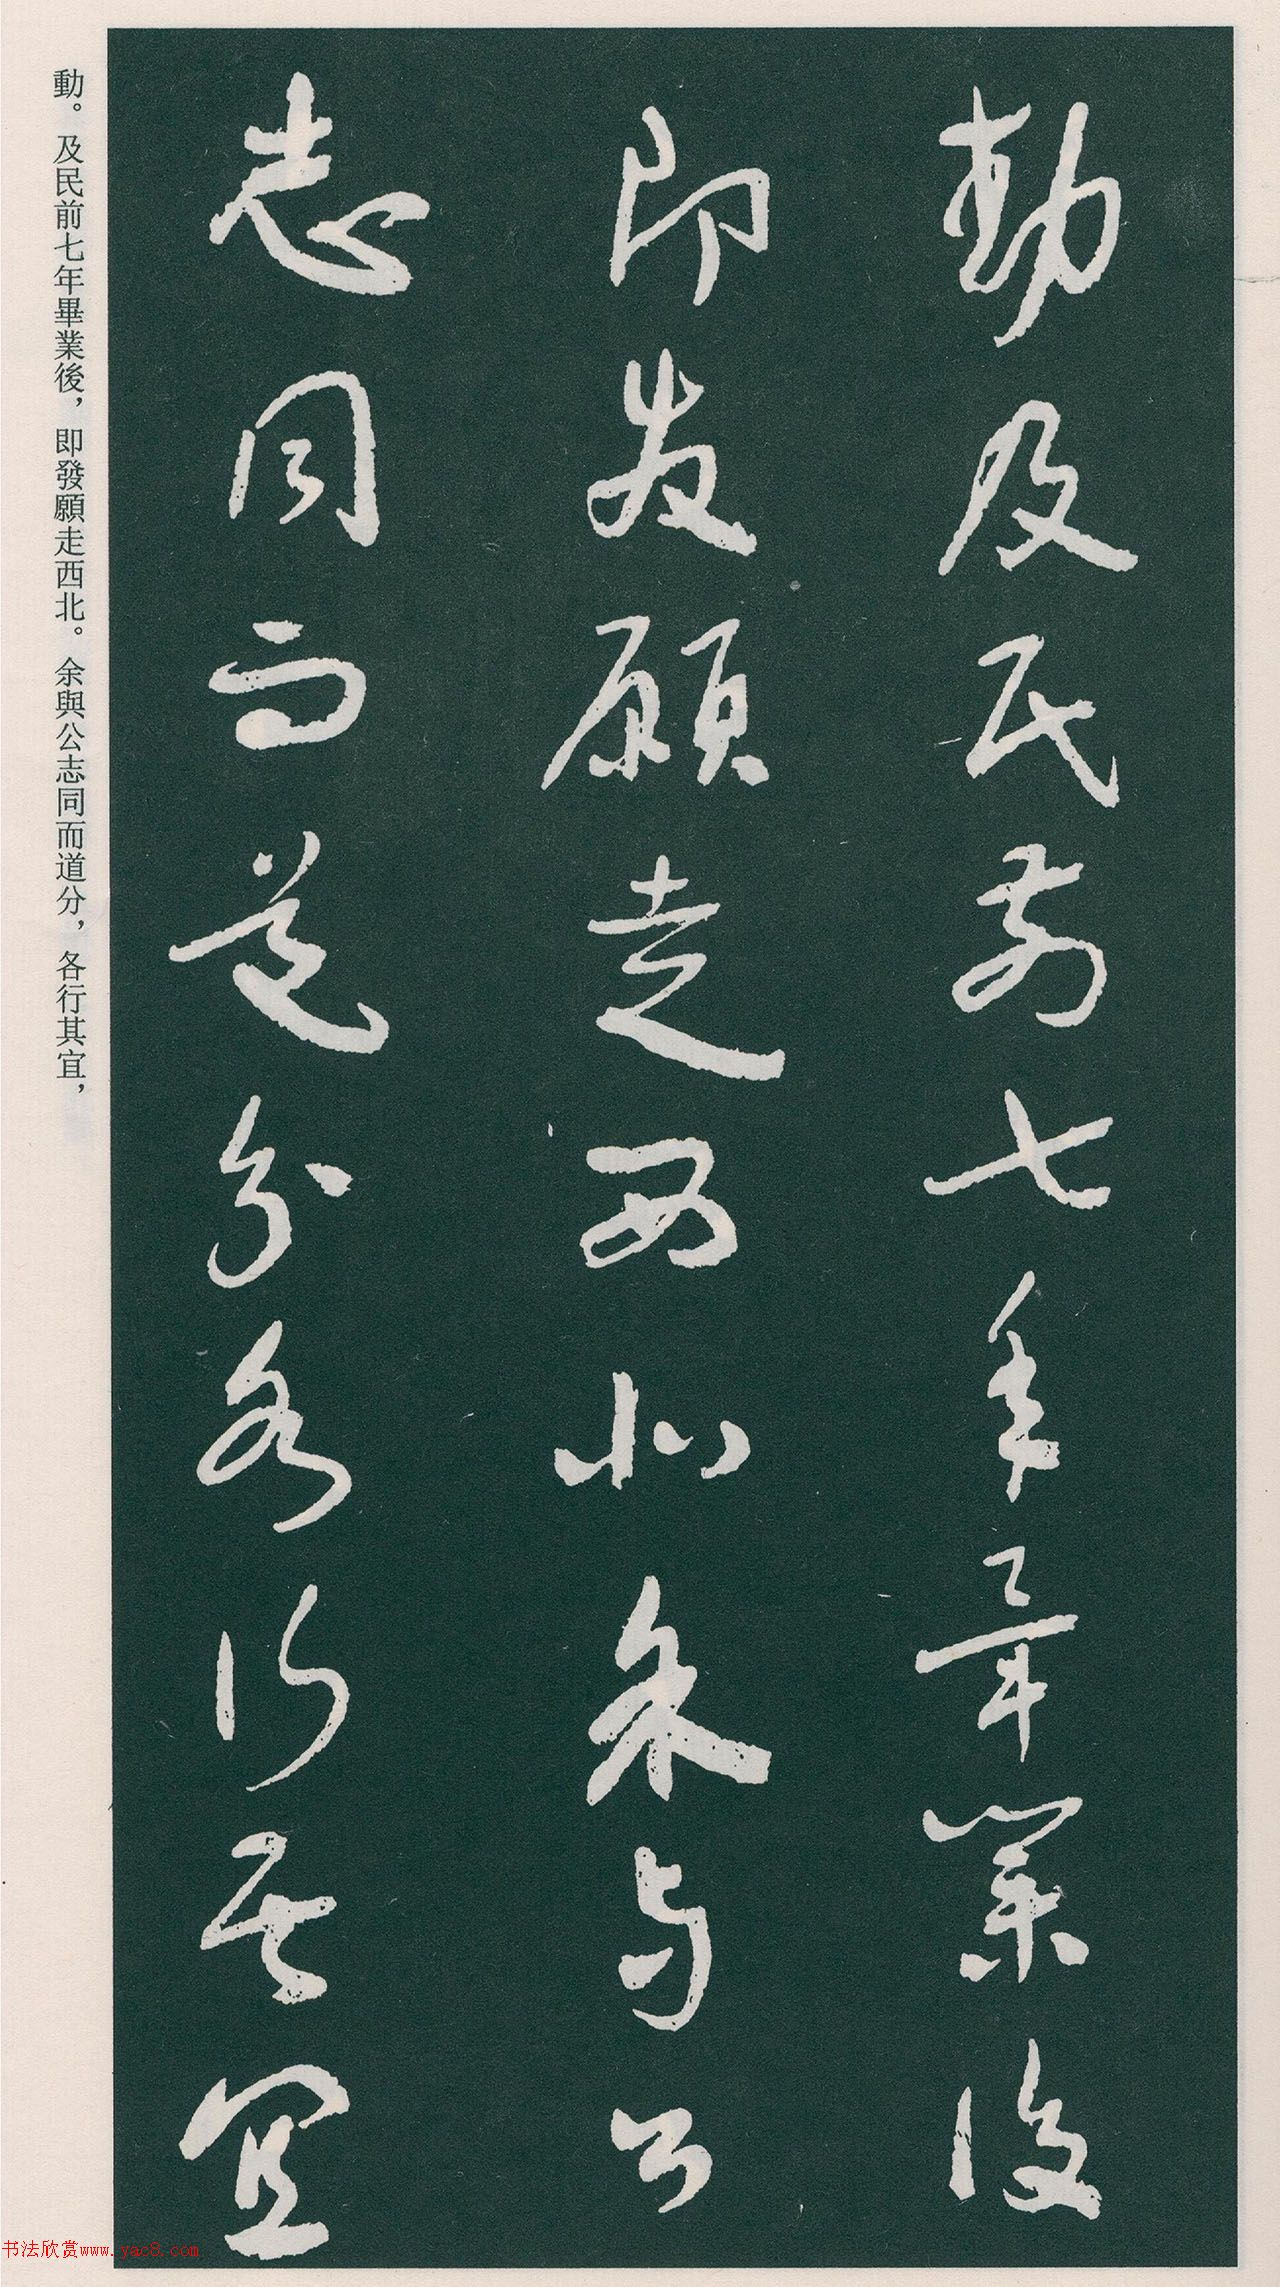 動及民前七年畢業後
即發願走西北余與公
志同而道分各行其宜
動。及民前七年畢業後，即發願走西北。余與公志同而道分，各行其宜，
书法欣赏www.yac8.com